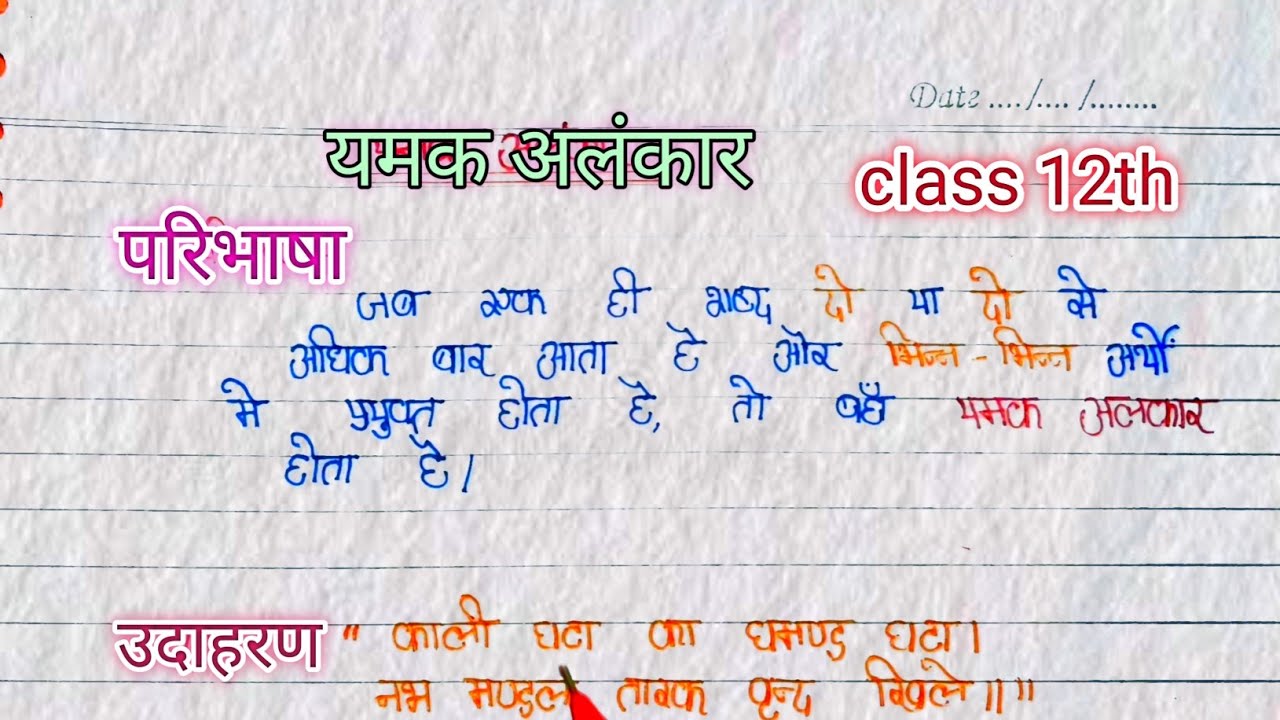 Date ..../.... /........
यमक अलंकार
class 12th
परिभाषा
जब एक ही शब्द दो या दो से
अधिक बार आता है और भिन्न - भिन्न अर्थों
मे प्रयुक्त होता है, तो वहाँ यमक अलकार
होता है।
उदाहरण " काली घटा का घमण्ड घटा।
नभ मण्डल तारक वृन्द खिले॥"